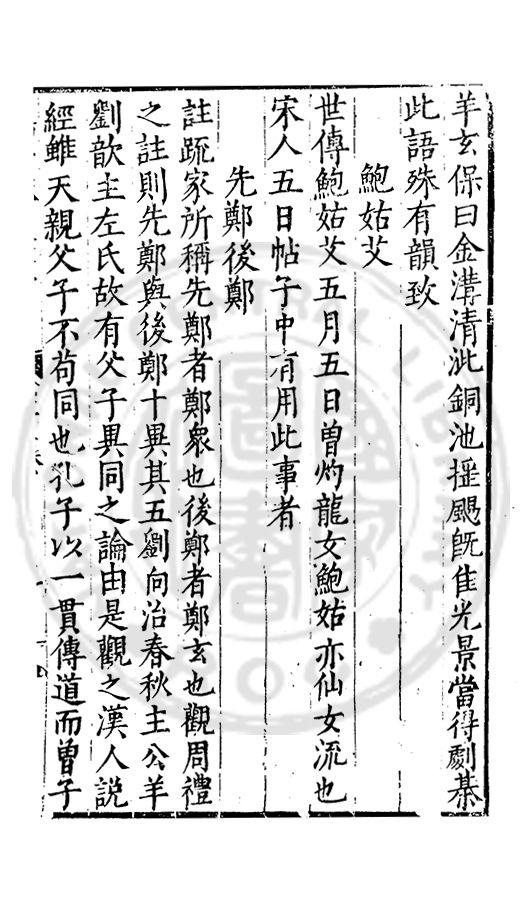 羊玄保曰金溝清泚銅池摇颺旣佳光景當得劇棊
此語殊有韻致
鮑姑艾
世傳鮑姑艾五月五日曾灼龍女鮑姑亦仙女流也
宋人五日帖子中有用此事者
先鄭後鄭
註疏家所稱先鄭者鄭衆也後鄭者鄭玄也觀周禮
之註則先鄭與後鄭十異其五劉向治春秋主公羊
劉歆主左氏故有父子異同之論由是觀之漢人説
經雖天親父子不苟同也孔子以一貫傳道而曾子